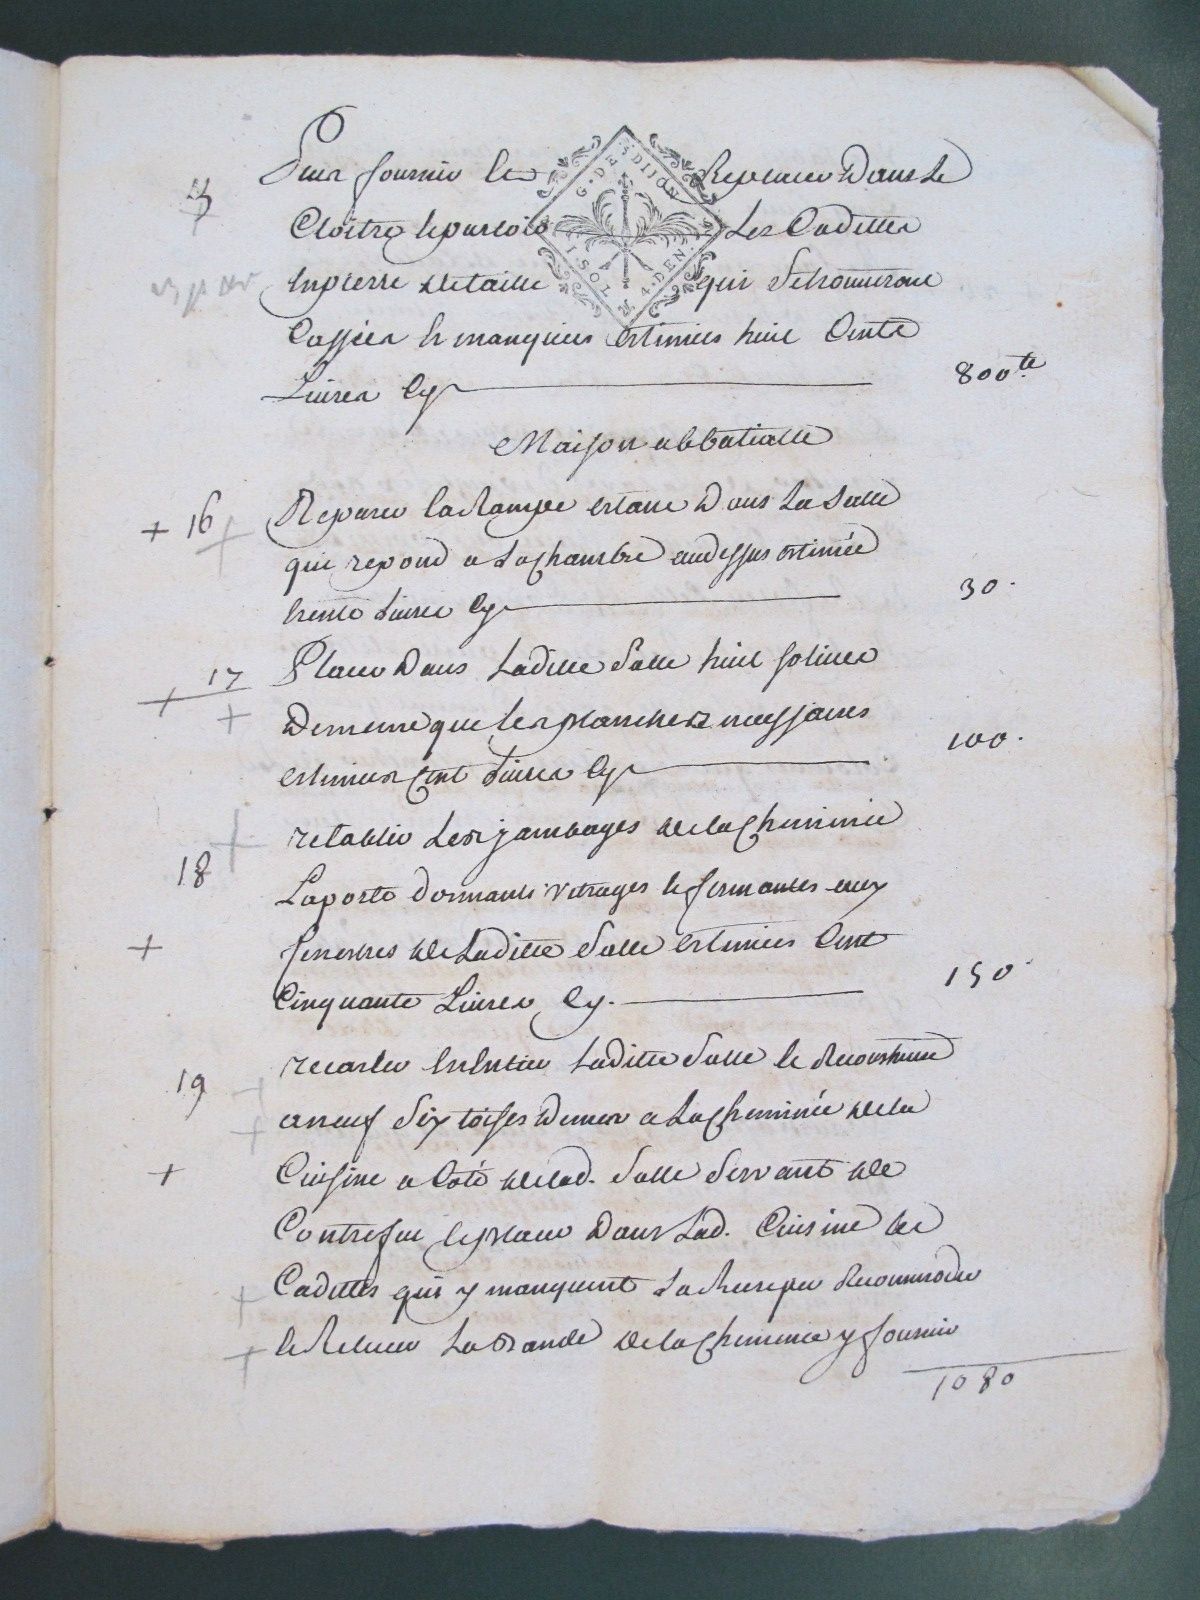 Pour fournir et Replacer Dans le
Cloitre le parloir Les Cadettes
En pierre de taille qui Se trouveront
Cassées et manquées Estimées huit Cents
Livres Cy 800 tt
G. DES DIJON
1. SOL 4. DEN.
Maison abbatialle
+ 16 Reparer la Rampe Estant Dans La Salle
qui repond a La Chambre au dessus Estimée
trente Livres Cy 30.
17 Placer Dans Laditte Salle huit solives
+ De meme que les planches necessaires
estimées Cent Livres Cy 100.
retablir Les jambages de la Cheminée
18 La porte Dormants vitrages et fermantes aux
+ fenestres de Laditte Salle Estimées Cent
Cinquante Livres Cy. 150
19 recarler En Entier Laditte Salle et Reconstruire
a neuf Six toises De mur a La Cheminée de la
+ Cuisine a Coté de lad. Salle Servant de
Contrefeu et placer Dans Lad. Cuisine les
Cadettes qui y manquent La Recreper Raccommoder
et Relever La Bande de la Cheminée y fournir
1080